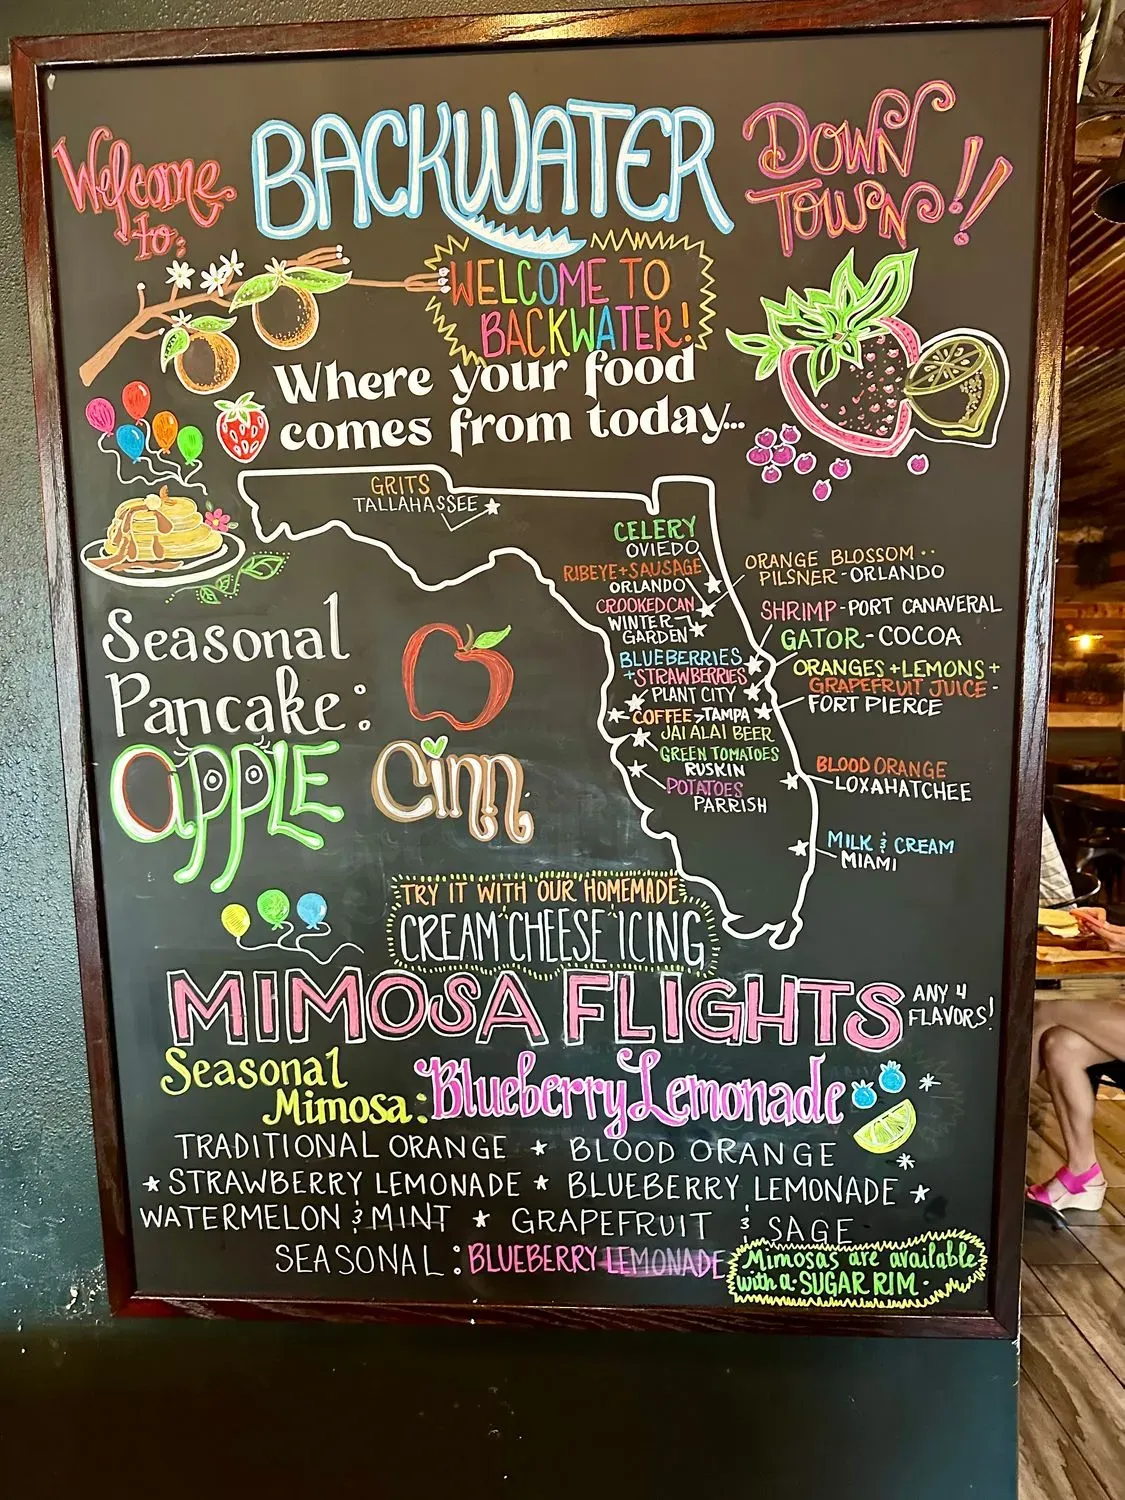 Welcome to:
BACKWATER
DOWN
TOWN!!
WELCOME TO
BACKWATER!
Where your food
comes from today...
GRITS
TALLAHASSEE
CELERY
OVIEDO
RIBEYE + SAUSAGE
ORLANDO
CROOKED CAN
WINTER
GARDEN
BLUEBERRIES
+STRAWBERRIES
PLANT CITY
COFFEE>TAMPA
JAI ALAI BEER
GREEN TOMATOES
RUSKIN
POTATOES
PARRISH
ORANGE BLOSSOM
PILSNER-ORLANDO
SHRIMP-PORT CANAVERAL
GATOR-COCOA
ORANGES+LEMONS+
GRAPEFRUIT JUICE-
FORT PIERCE
BLOOD ORANGE
LOXAHATCHEE
MILK & CREAM
MIAMI
Seasonal
Pancake:
APPLE Cinn.
TRY IT WITH OUR HOMEMADE
CREAM CHEESE ICING
MIMOSA FLIGHTS
ANY 4
FLAVORS!
Seasonal
Mimosa: Blueberry Lemonade
TRADITIONAL ORANGE * BLOOD ORANGE
* STRAWBERRY LEMONADE * BLUEBERRY LEMONADE *
WATERMELON & MINT * GRAPEFRUIT & SAGE
SEASONAL: BLUEBERRY LEMONADE
Mimosas are available
with a SUGAR RIM